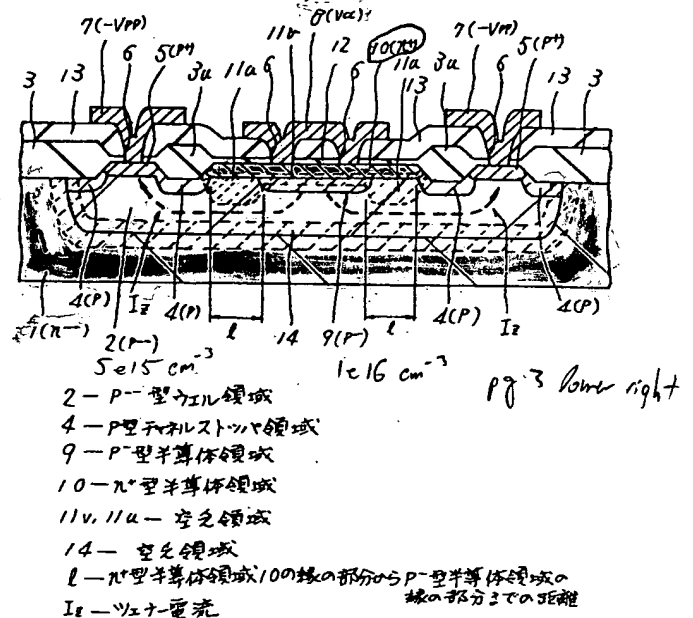 7(-VPP) 6 5(P+) 11v 8(Vcc) 12 10(n+) 7(-VPP) 5(P+)
3 13 3a 11a 6 6 11a 13 3a 6 13 3
4(P) Iz 4(P) l 14 l 9(P-) 4(P) Iz 4(P)
1(n--) 2(P--)
5e15 cm-3 1e16 cm-3
pg. 3 lower right
2 — P--型ウェル領域
4 — P型チャネルストッパ領域
9 — P-型半導体領域
10 — n+型半導体領域
11v, 11a — 空乏領域
14 — 空乏領域
l — n+型半導体領域10の縁の部分からP-型半導体領域の
縁の部分までの距離
Iz — ツェナー電流